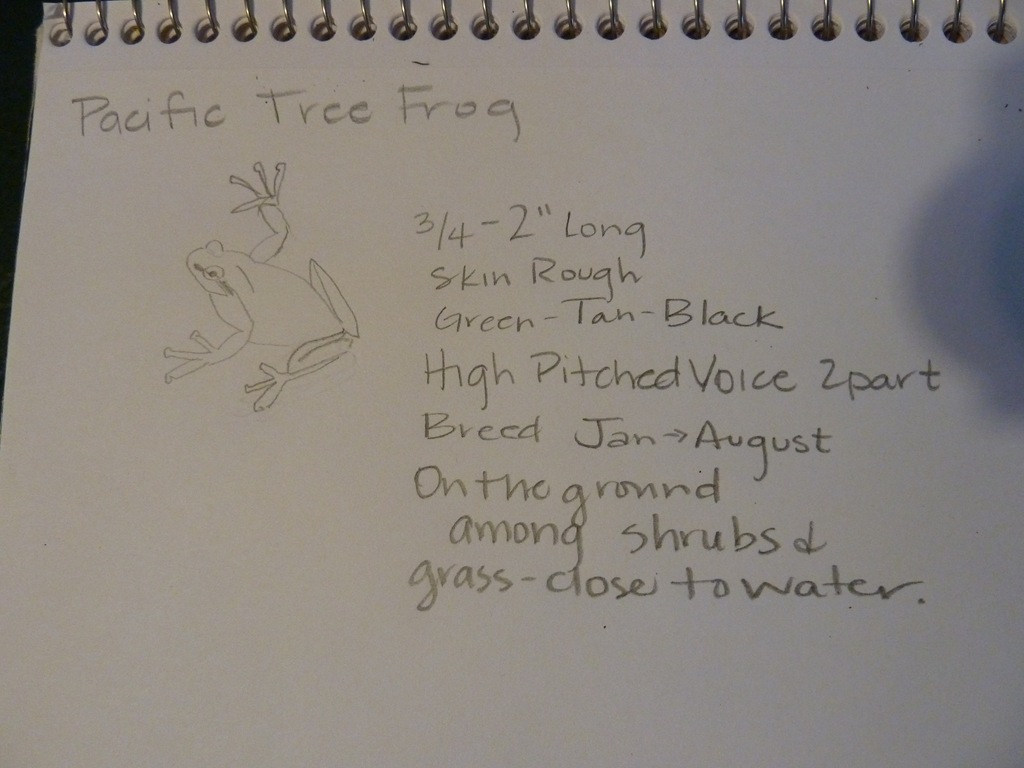 Pacific Tree Frog
3/4-2" Long
Skin Rough
Green-Tan-Black
High Pitched Voice 2part
Breed Jan→August
On the ground
among shrubs &
grass-close to water.